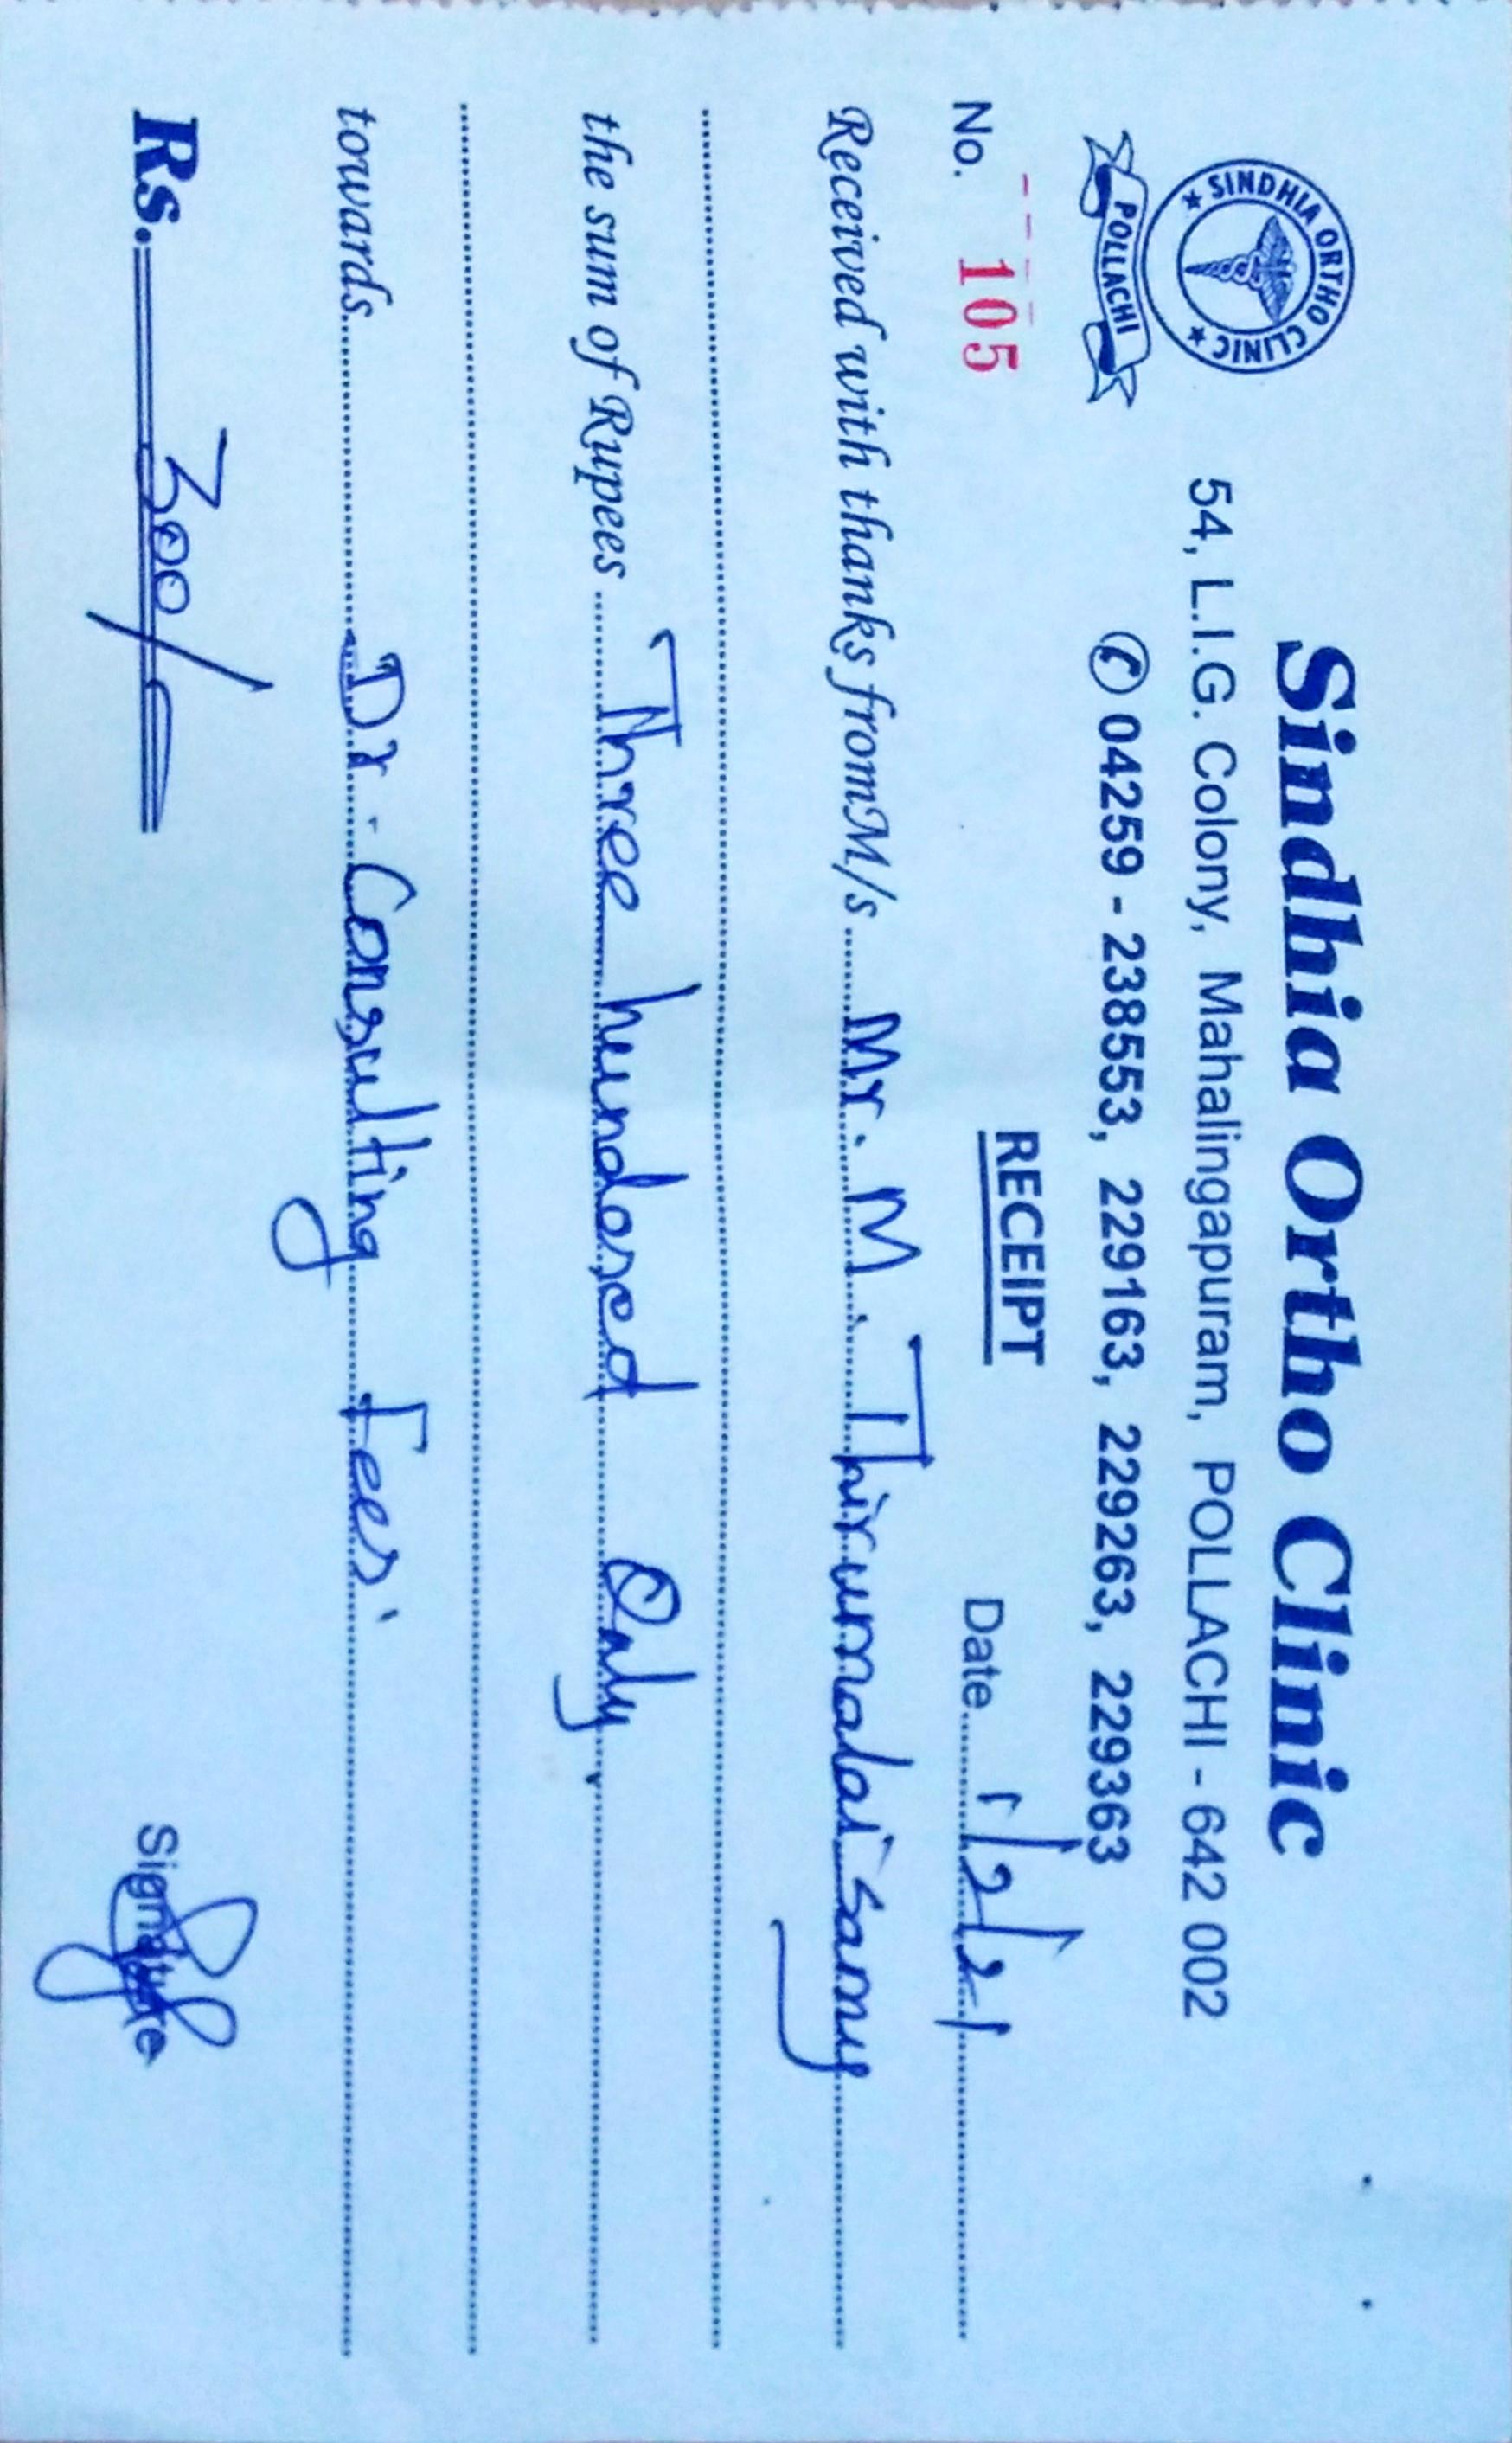 Sindhia Ortho Clinic
SINDHIA ORTHO CLINIC
POLLACHI
54, L.I.G. Colony, Mahalingapuram, POLLACHI - 642 002
✆ 04259 - 238553, 229163, 229263, 229363
RECEIPT
No. 105 Date 1/2/21
Received with thanks from M/s Mr. M. Thirumalai Samy
the sum of Rupees Three hundered Only.
towards Dr. Consulting Fees
Rs. 300/- Signature